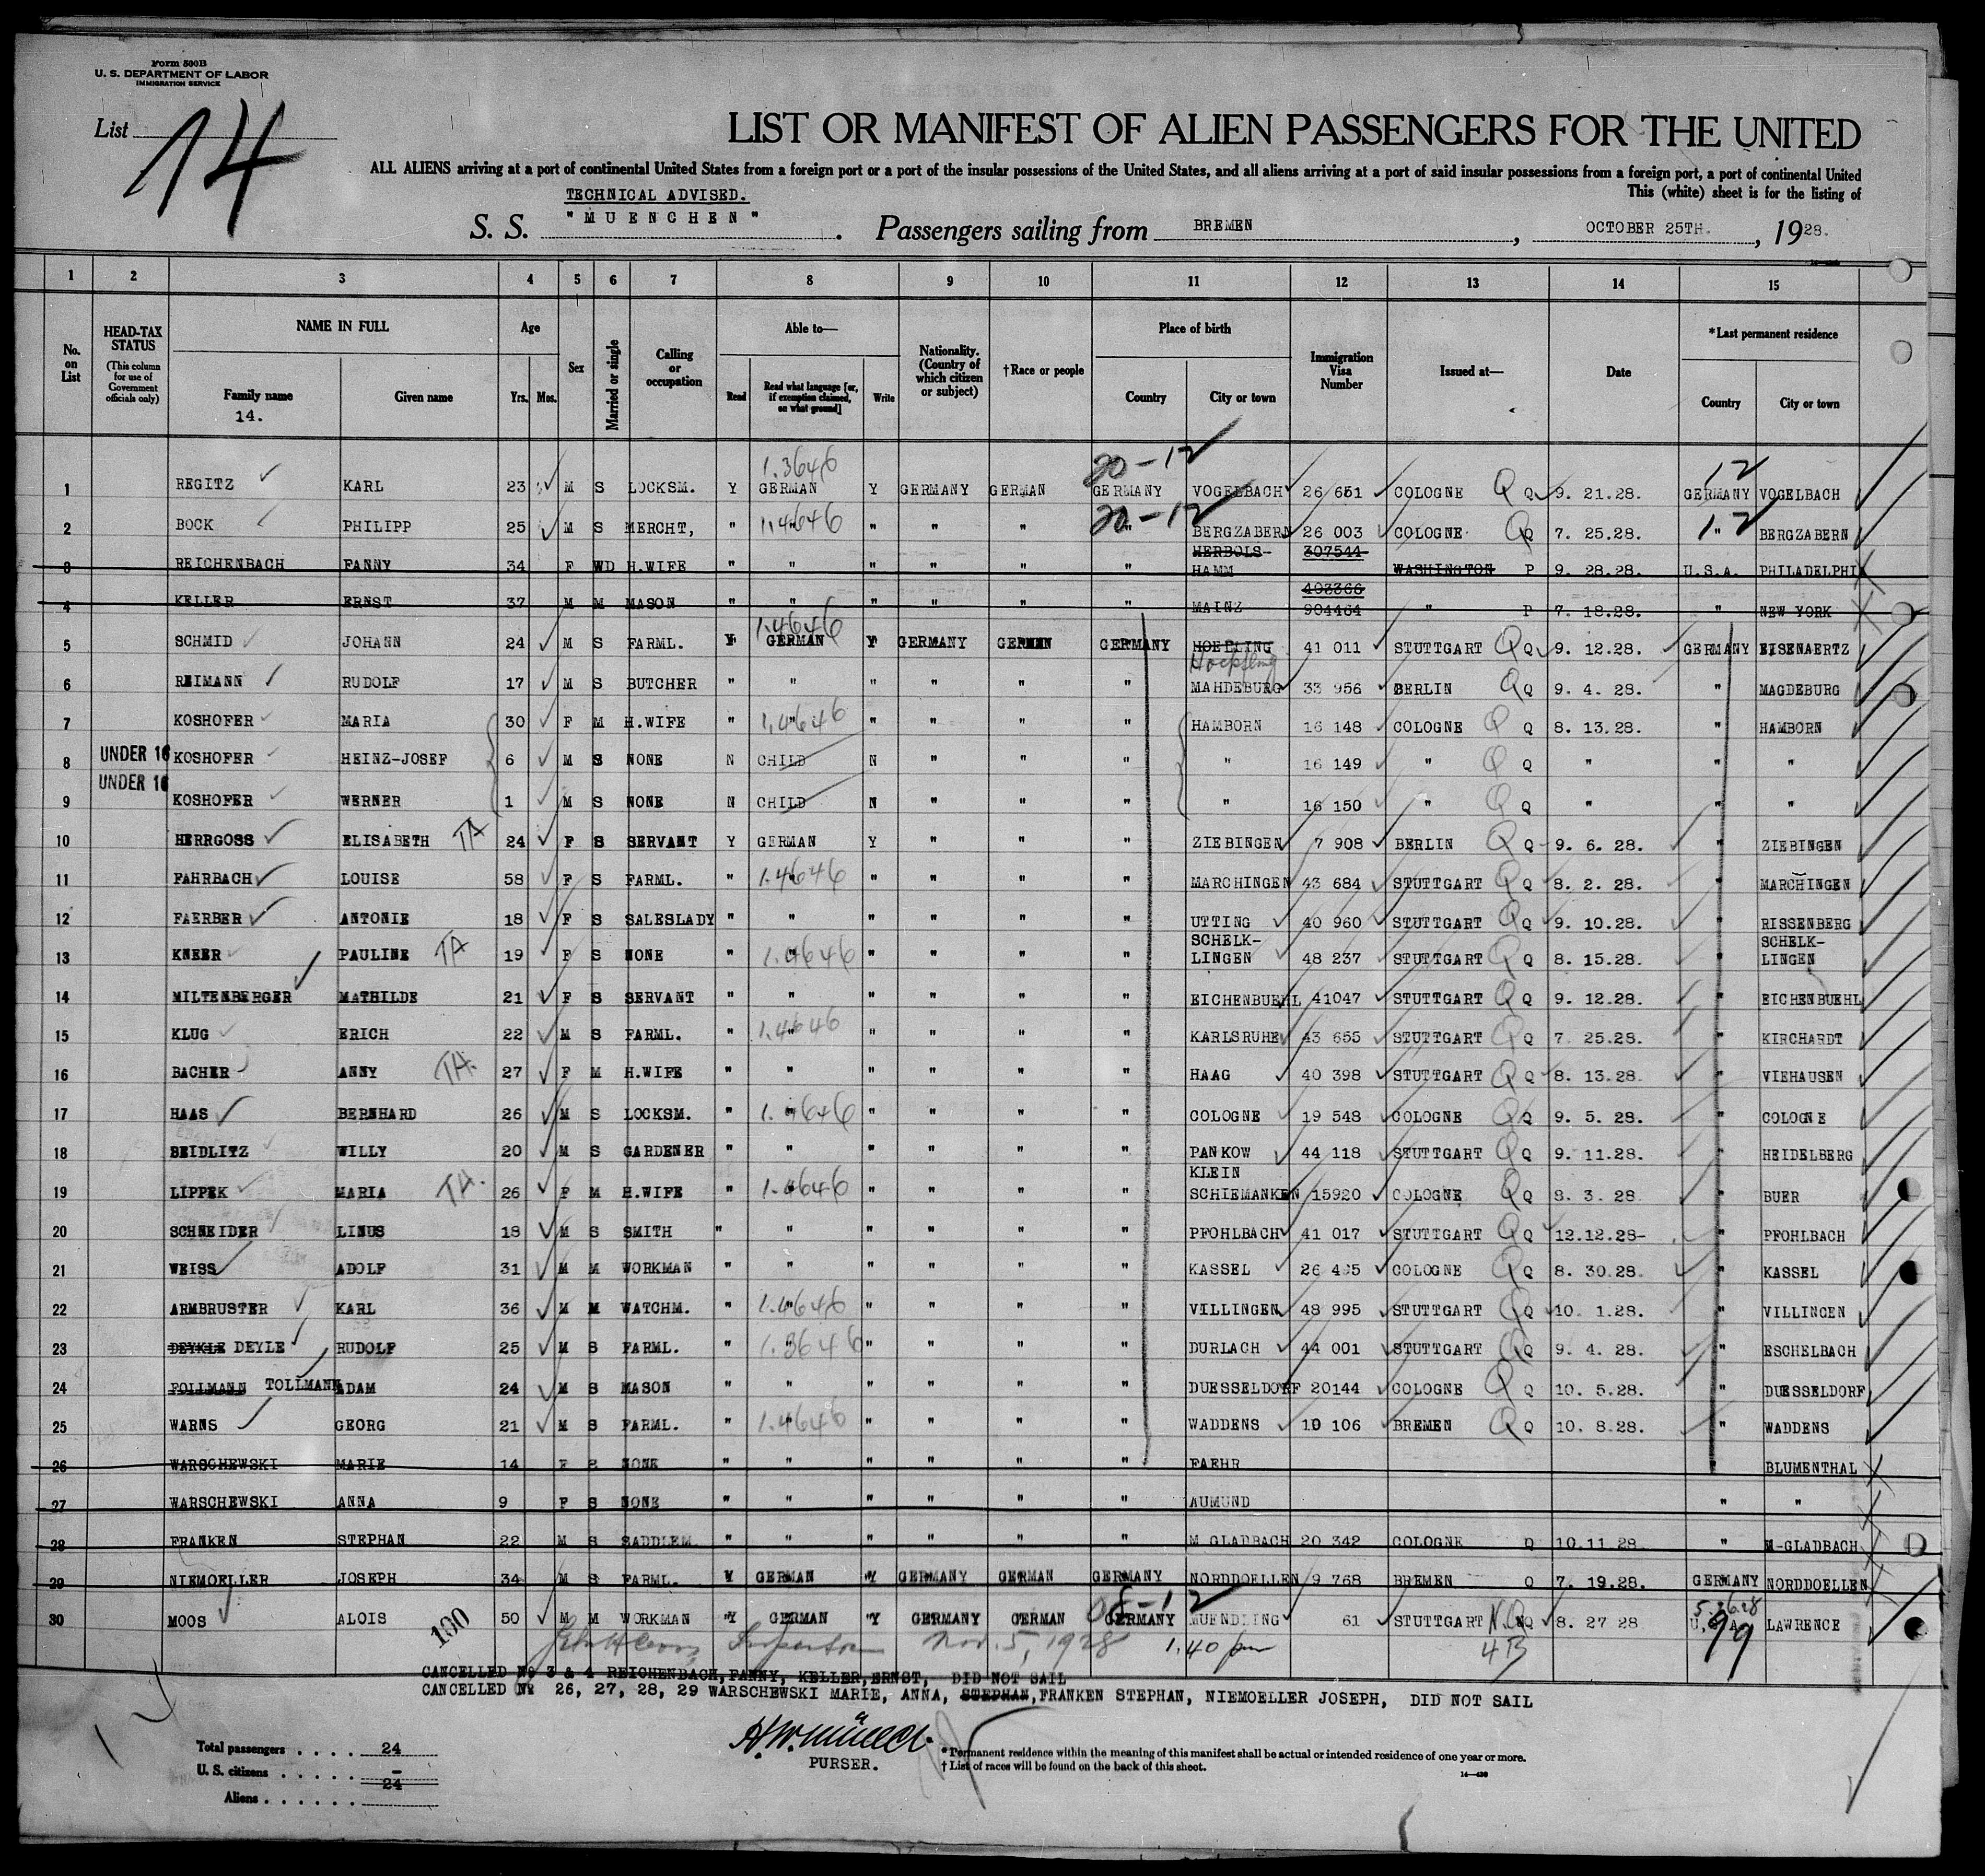 Form 500B
U. S. DEPARTMENT OF LABOR
IMMIGRATION SERVICE
List 14
LIST OR MANIFEST OF ALIEN PASSENGERS FOR THE UNITED
ALL ALIENS arriving at a port of continental United States from a foreign port or a port of the insular possessions of the United States, and all aliens arriving at a port of said insular possessions from a foreign port, a port of continental United
This (white) sheet is for the listing of
TECHNICAL ADVISED.
S. S. "MUENCHEN". Passengers sailing from BREMEN, OCTOBER 25TH., 1928.
1 2 3 4 5 6 7 8 9 10 11 12 13 14 15
No. on List
HEAD-TAX STATUS (This column for use of Government officials only)
NAME IN FULL
Family name
14.
Given name
Age
Yrs. Mos.
Sex
Married or single
Calling or occupation
Able to—
Read
Read what language [or, if exemption claimed, on what ground]
Write
Nationality. (Country of which citizen or subject)
†Race or people
Place of birth
Country
City or town
Immigration Visa Number
Issued at—
Date
*Last permanent residence
Country
City or town
1.3646 20-12 12
1 REGITZ KARL 23 M S LOCKSM. Y GERMAN Y GERMANY GERMAN GERMANY VOGELBACH 26 651 COLOGNE Q Q 9. 21.28. GERMANY VOGELBACH
2 BOCK PHILIPP 25 M S MERCHT, " 1.4646 " " " " 20-12 BERGZABERN 26 003 COLOGNE Q Q 7. 25.28. " 12 BERGZABERN
3 REICHENBACH FANNY 34 F WD H.WIFE " " " " " " HERBOLS-HAMM 307544 WASHINGTON P 9. 28.28. U.S.A. PHILADELPHIA
4 KELLER ERNST 37 M M MASON " " " " " " MAINZ 403366 904464 " P 7. 18.28. " NEW YORK
5 SCHMID JOHANN 24 M S FARML. Y 1.4646 GERMAN Y GERMANY GERMAN GERMANY HOEPLING Hoepfling 41 011 STUTTGART Q Q 9. 12.28. GERMANY EISENAERTZ
6 REIMANN RUDOLF 17 M S BUTCHER " " " " " " MAHDEBURG 33 956 BERLIN Q Q 9. 4. 28. " MAGDEBURG
7 KOSHOFER MARIA 30 F M H.WIFE " 1.4646 " " " " HAMBORN 16 148 COLOGNE Q Q 8. 13.28. " HAMBORN
8 UNDER 16 KOSHOFER HEINZ-JOSEF 6 M S NONE N CHILD N " " " " 16 149 " Q Q " " "
9 UNDER 16 KOSHOFER WERNER 1 M S NONE N CHILD N " " " " 16 150 " Q Q " " "
10 HERRGOSS ELISABETH TA 24 F S SERVANT Y GERMAN Y " " " ZIEBINGEN 7 908 BERLIN Q Q 9. 6. 28. " ZIEBINGEN
11 FAHRBACH LOUISE 58 F S FARML. " 1.4646 " " " " MARCHINGEN 43 684 STUTTGART Q Q 8. 2. 28. " MARCHINGEN
12 FAERBER ANTONIE 18 F S SALESLADY " " " " " " UTTING 40 960 STUTTGART Q Q 9. 10.28. " RISSENBERG
13 KNEER PAULINE TA 19 F S NONE " 1.4646 " " " " SCHELK-LINGEN 48 237 STUTTGART Q Q 8. 15.28. " SCHELK-LINGEN
14 MILTENBERGER MATHILDE 21 F S SERVANT " " " " " " EICHENBUEHL 41047 STUTTGART Q Q 9. 12.28. " EICHENBUEHL
15 KLUG ERICH 22 M S FARML. " 1.4646 " " " " KARLSRUHE 43 655 STUTTGART Q Q 7. 25.28. " KIRCHARDT
16 BACHER ANNY TA. 27 F M H.WIFE " " " " " " HAAG 40 398 STUTTGART Q Q 8. 13.28. " VIEHAUSEN
17 HAAS BERNHARD 26 M S LOCKSM. " 1.4646 " " " " COLOGNE 19 548 COLOGNE Q Q 9. 5. 28. " COLOGNE
18 SEIDLITZ WILLY 20 M S GARDENER " " " " " " PANKOW 44 118 STUTTGART Q Q 9. 11.28. " HEIDELBERG
19 LIPPEK MARIA TA. 26 F M H.WIFE " 1.4646 " " " " KLEIN SCHIEMANKEN 15920 COLOGNE Q Q 8. 3. 28 " BUER
20 SCHNEIDER LINUS 18 M S SMITH " " " " " " PFOHLBACH 41 017 STUTTGART Q Q 12.12.28- " PFOHLBACH
21 WEISS ADOLF 31 M M WORKMAN " " " " " " KASSEL 26 495 COLOGNE Q Q 8. 30.28. " KASSEL
22 ARMBRUSTER KARL 36 M M WATCHM. " 1.4646 " " " " VILLINGEN 48 995 STUTTGART Q Q 10. 1.28. " VILLINGEN
23 DEYKLE DEYLE RUDOLF 25 M S FARML. " 1.3646 " " " " DURLACH 44 001 STUTTGART Q Q 9. 4. 28. " ESCHELBACH
24 POLLMANN TOLLMANN ADAM 24 M S MASON " " " " " " DUESSELDORF 20144 COLOGNE Q Q 10. 5.28. " DUESSELDORF
25 WARNS GEORG 21 M S FARML. " 1.4646 " " " " WADDENS 10 106 BREMEN Q Q 10. 8.28. " WADDENS
26 WARSCHEWSKI MARIE 14 F S NONE " " " " " " FAEHR BLUMENTHAL
27 WARSCHEWSKI ANNA 9 F S NONE " " " " " " AUMUND " "
28 FRANKEN STEPHAN 22 M S SADDLEM. " " " " " " M GLADBACH 20 342 COLOGNE Q 10.11 28 " M-GLADBACH
29 NIEMOELLER JOSEPH 34 M S FARML. Y GERMAN Y GERMANY GERMAN GERMANY NORDDOELLEN 9 768 BREMEN Q 7. 19.28. GERMANY NORDDOELLEN
30 MOOS ALOIS 50 M M WORKMAN Y GERMAN Y GERMANY GERMAN GERMANY MUENDLING 61 STUTTGART N.Q. NQ 8. 27 28 U.S.A. 99 LAWRENCE
100 Inspector Nov. 5, 1928 1.40 pm 4B
CANCELLED No 3 & 4 REICHENBACH, FANNY, KELLER, ERNST, DID NOT SAIL
CANCELLED No 26, 27, 28, 29 WARSCHEWSKI MARIE, ANNA, STEPHAN, FRANKEN STEPHAN, NIEMOELLER JOSEPH, DID NOT SAIL
PURSER.
*Permanent residence within the meaning of this manifest shall be actual or intended residence of one year or more.
†List of races will be found on the back of this sheet.
Total passengers .... 24
U. S. citizens ..... -
24
Aliens ......